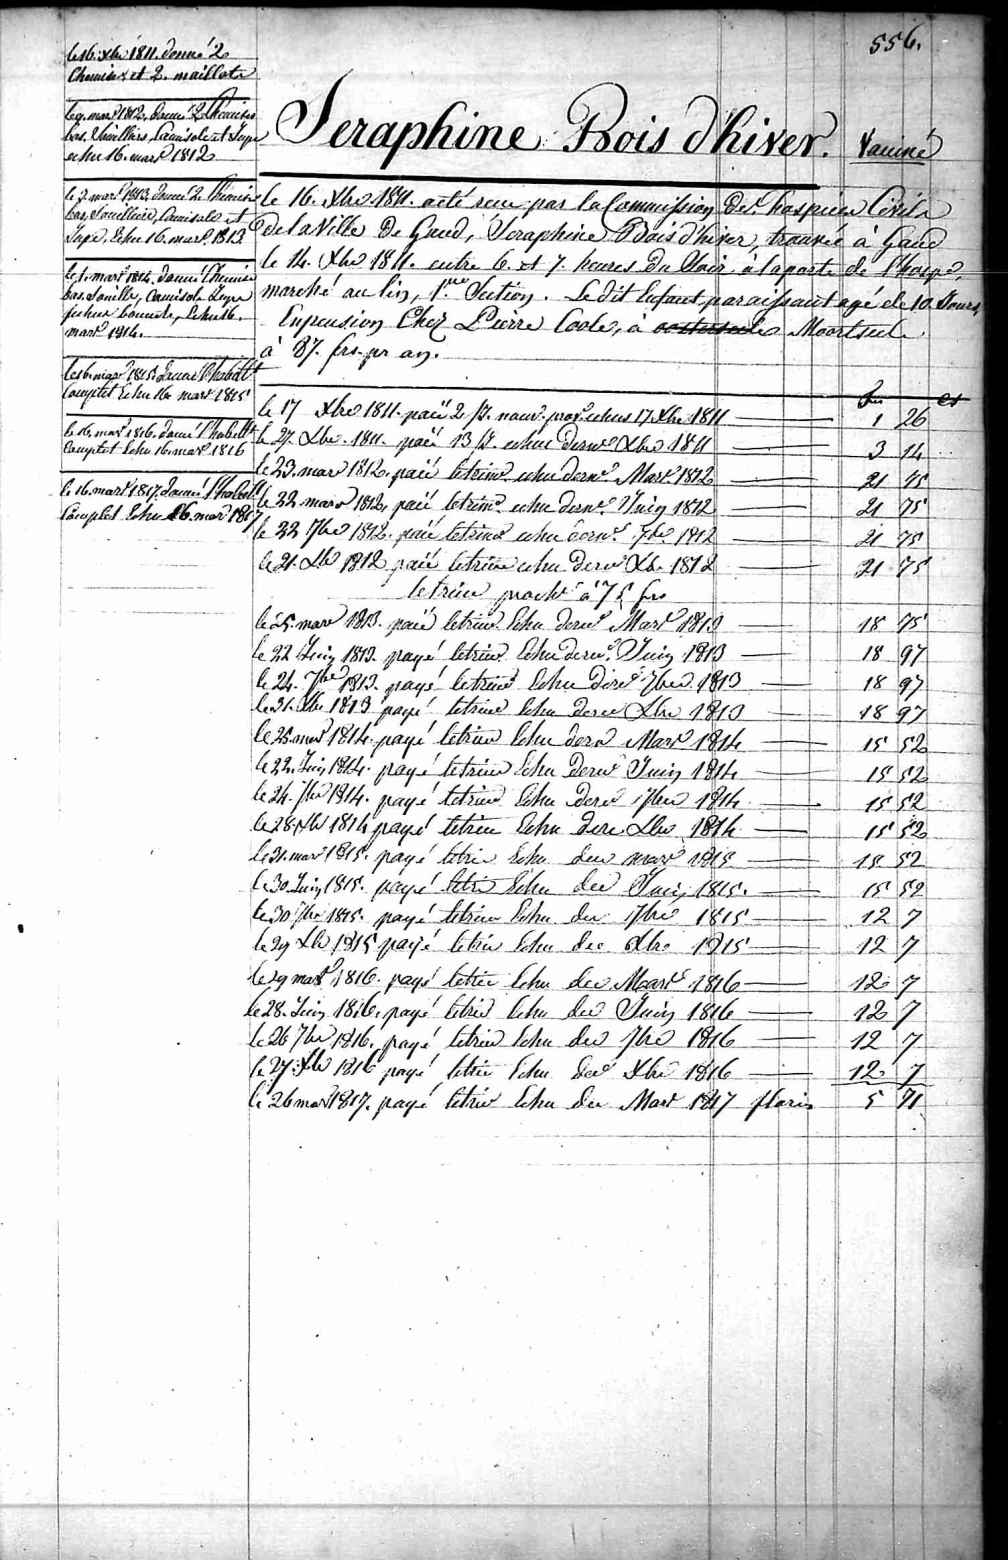 556.
le 16. Xbre 1811. donné 2
Chemises et 2. maillots
le 9. mars 1812, donné 2 Chemises
bas, Souilliers, Camisole et Jupe
echu 16. mars 1812
le 3. mars 1813. donné 2. Chemises
bas, Souilliers, Camisole et
Jupe, Echu 16. mars. 1813.
le 1. mars 1814. donné Chemise
bas. Souilles, Camisole Jupe
bonnets, Echu 16.
mars 1814.
le 16. mars 1815. donné l'habillt
Complet Echu 16 mars 1815
le 16. mars 1816. donné l'habillt
Complet Echu 16. mars 1816
le 16. mars 1817. donné l'habillt
Complet Echu 16. mars 1817
Seraphine Bois d'hiver.
Vacciné
le 16. Xbre 1811. a été reçu par la Commission des hospices Civils
de la Ville de Gand, Seraphine Bois d'hiver, trouvée à Gand
le 14. Xbre 1811. entre 6. et 7. heures du Soir, à la porte de l'hospe.
marché au lin, 1.re Section. Le dit Enfant paraissant agé de 10. Jours,
En pension Chez Pierre Coole, à Moortseele
à 87. frs. pr an.
frs cs
le 17 Xbre 1811. paié 2 p. nour. prov. echus 17 Xbre 1811 — 1 26
le 27. Xbre. 1811. paié 13 p. echue dernr Xbre 1811 — 3 14
le 23. mars 1812. paié le trimr echu dernr. Mars 1812 — 21 75
le 22 mars 1812, paié le trimr. echu dernr. Juin 1812 — 21 75
le 22 7bre 1812. paié le trimr echu dernr. 7bre 1812 — 21 75
le 21. Xbre 1812 paié le trimre echu dernr Xbre 1812 — 21 75
le trim proch à 75 frs
le 25. mars 1813. paié le trimr Echu dernr Mars 1813 — 18 75
le 22 Juin 1813. payé le trimr Echu dernr. Juin 1813 — 18 97
le 24. 7bre 1813. payé le trimr Echu dernr 7bre 1813 — 18 97
le 31. Xbre 1813 payé le trimr Echu dernr Xbre 1813 — 18 97
le 25. mars 1814. payé le trimr Echu dernr Mars 1814 — 15 52
le 22. Juin 1814. payé le trimr Echu dernr Juin 1814 — 15 52
le 24. 7bre 1814. payé le trimr Echu dernr 7bre 1814 — 15 52
le 28. Xbre 1814 payé le trimr Echu dernr Xbre 1814 — 15 52
le 31. mars 1815. payé le trimr Echu der mars 1815 — 15 52
le 30 Juin 1815. payé le trimr Echu der Juin 1815. — 15 52
le 30 7bre 1815. payé le trimr Echu der 7bre 1815 — 12 7
le 29 Xbre 1815 payé le trimr Echu der Xbre 1815 — 12 7
le 9 mars 1816. payé le trimr Echu der Mars 1816 — 12 7
le 28. Juin 1816, payé le trimr Echu der Juin 1816 — 12 7
le 26 7bre 1816, payé le trimr Echu der 7bre 1816 — 12 7
le 27. Xbre 1816 payé le trimr Echu der Xbre 1816 — 12 7
le 26 mars 1817. payé le trimr Echu der Mars 1817 florins 5 71